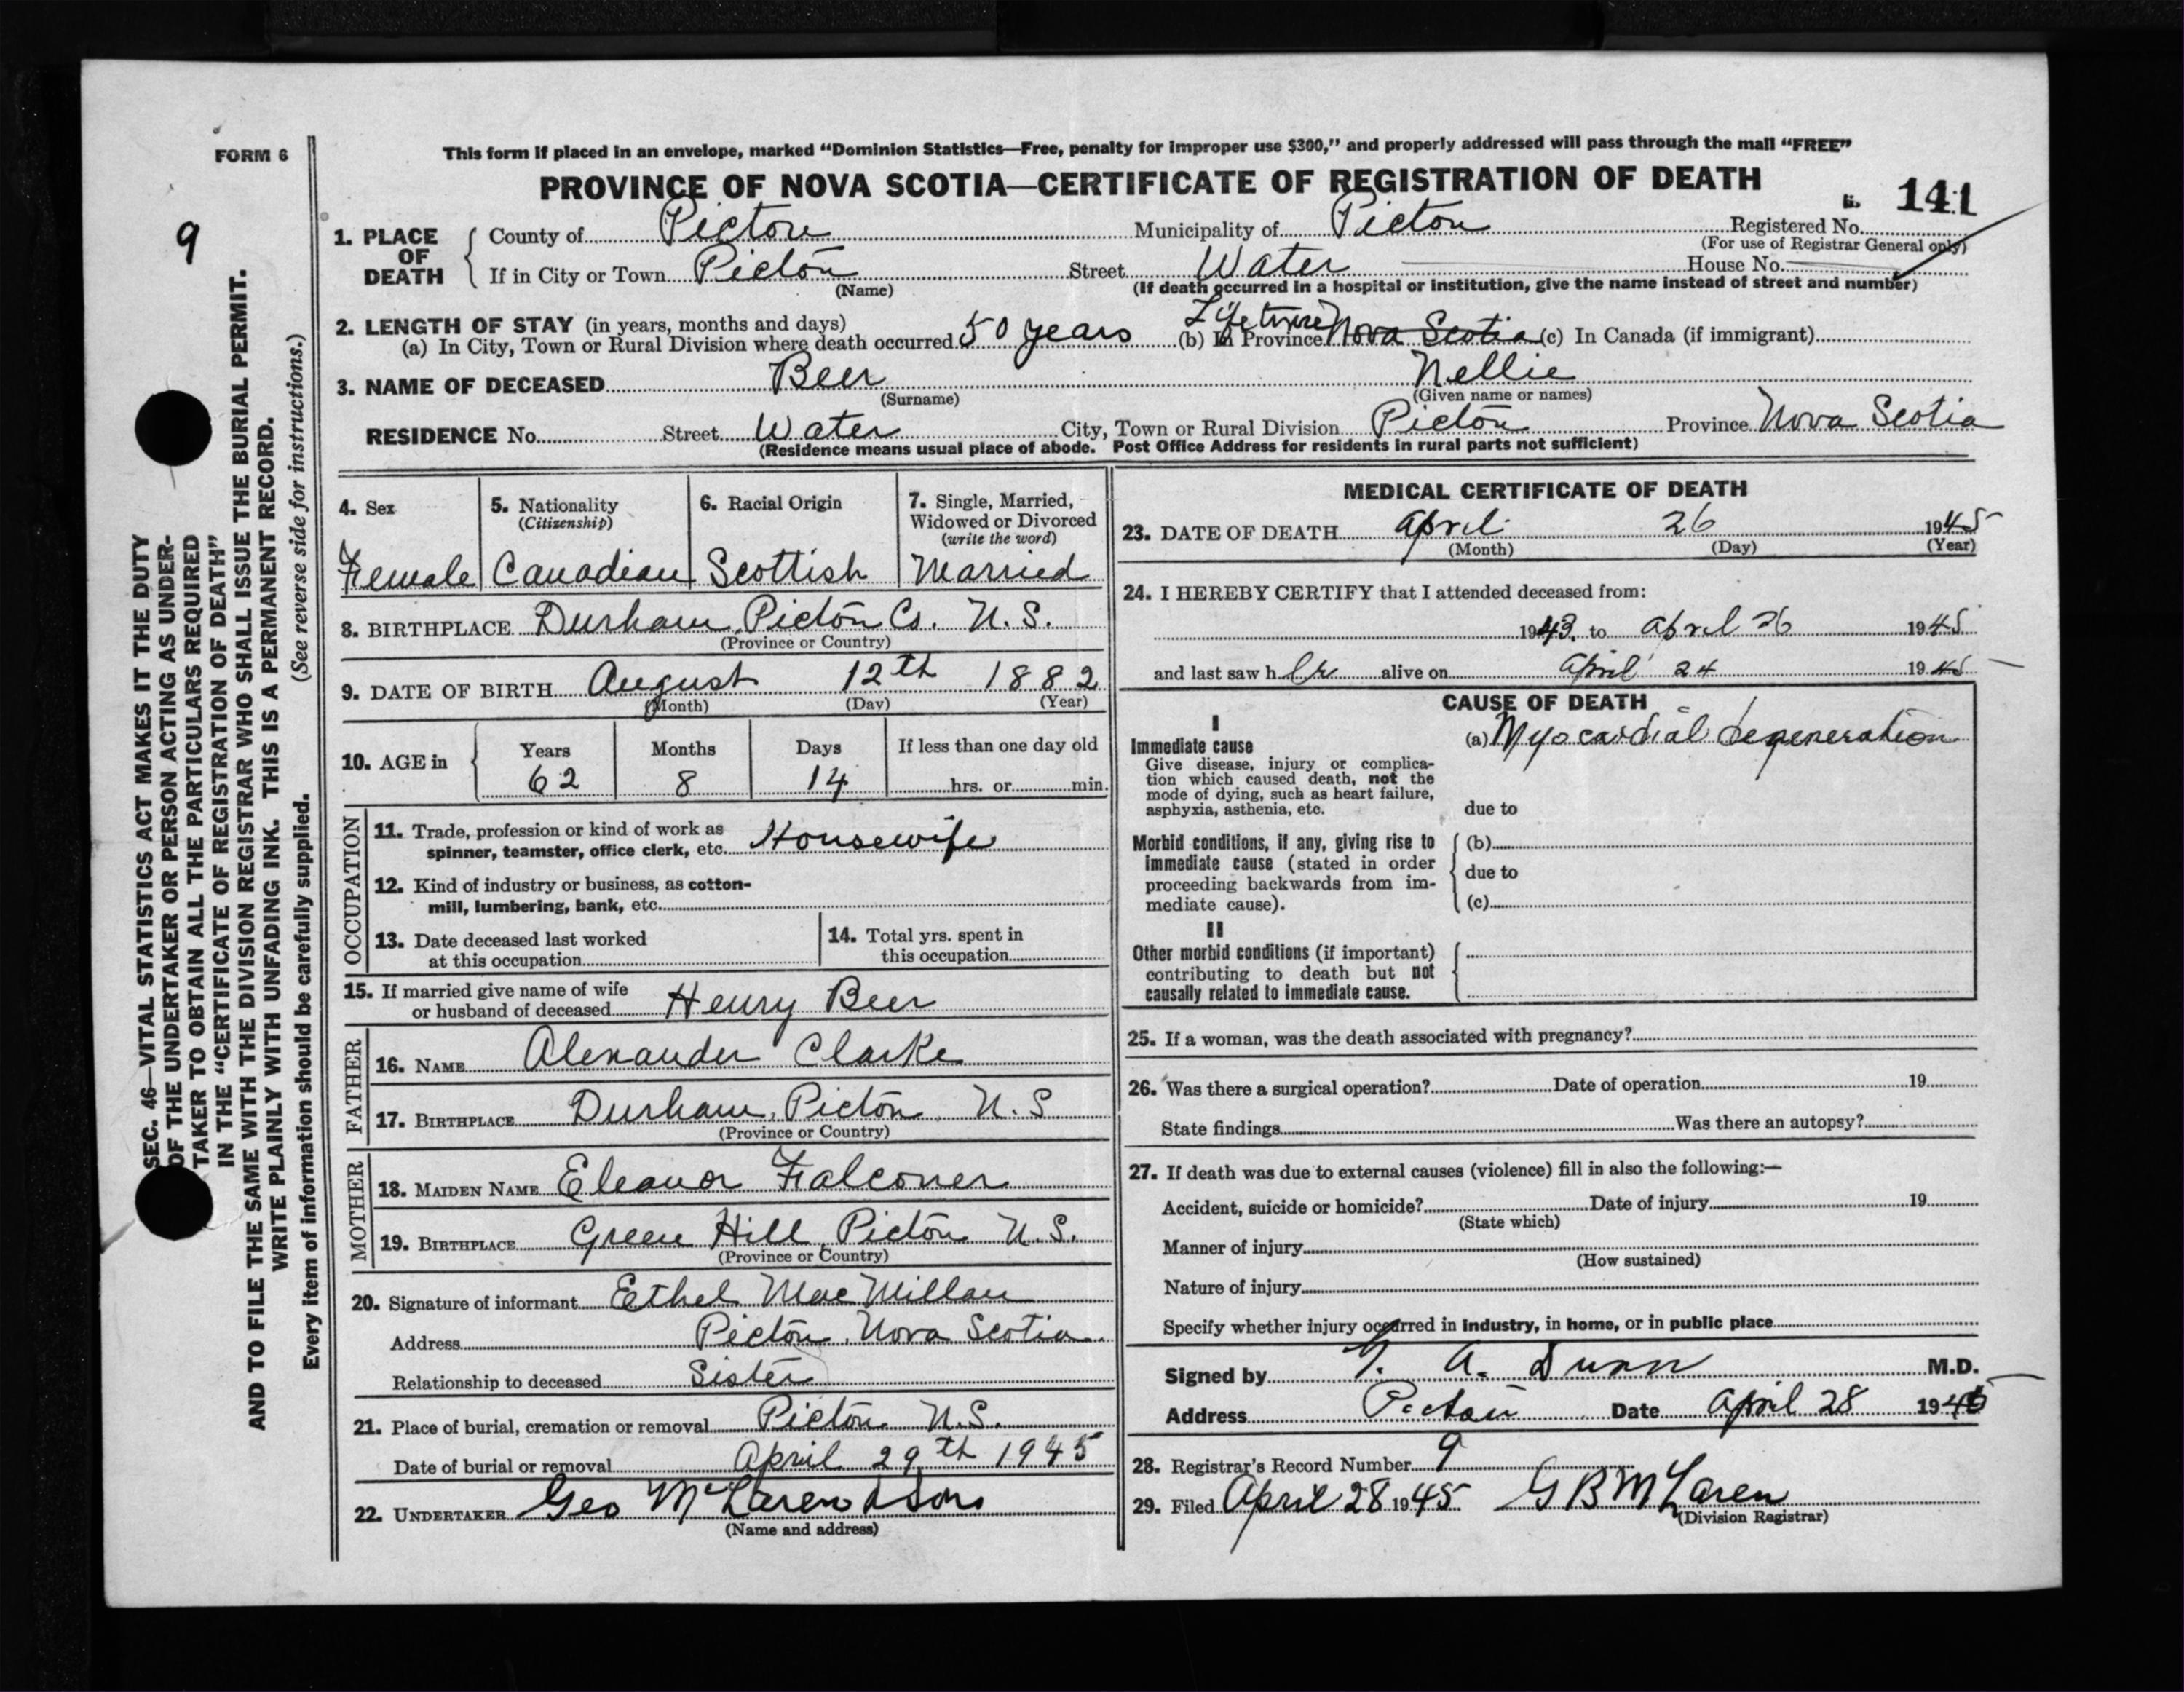 FORM 6
This form if placed in an envelope, marked "Dominion Statistics—Free, penalty for improper use $300," and properly addressed will pass through the mail "FREE"
PROVINCE OF NOVA SCOTIA—CERTIFICATE OF REGISTRATION OF DEATH
141
9
1. PLACE OF DEATH
County of Pictou Municipality of Pictou Registered No.
(For use of Registrar General only)
If in City or Town Pictou Street Water House No.
(Name) (If death occurred in a hospital or institution, give the name instead of street and number)
2. LENGTH OF STAY (in years, months and days)
(a) In City, Town or Rural Division where death occurred 50 years (b) In Province Lifetime Nova Scotia (c) In Canada (if immigrant)
3. NAME OF DECEASED Beer Nellie
(Surname) (Given name or names)
RESIDENCE No. Street Water City, Town or Rural Division Pictou Province Nova Scotia
(Residence means usual place of abode. Post Office Address for residents in rural parts not sufficient)
4. Sex Female
5. Nationality (Citizenship) Canadian
6. Racial Origin Scottish
7. Single, Married, Widowed or Divorced (write the word) Married
8. BIRTHPLACE Durham, Pictou Co. N.S.
(Province or Country)
9. DATE OF BIRTH August 12th 1882
(Month) (Day) (Year)
10. AGE in Years 62 Months 8 Days 14 If less than one day old hrs. or min.
OCCUPATION
11. Trade, profession or kind of work as
spinner, teamster, office clerk, etc. Housewife
12. Kind of industry or business, as cotton-
mill, lumbering, bank, etc.
13. Date deceased last worked
at this occupation
14. Total yrs. spent in
this occupation
15. If married give name of wife
or husband of deceased Henry Beer
FATHER
16. NAME Alexander Clarke
17. BIRTHPLACE Durham, Pictou, N.S
(Province or Country)
MOTHER
18. MAIDEN NAME Eleanor Falconer
19. BIRTHPLACE Green Hill, Pictou N.S.
(Province or Country)
20. Signature of informant Ethel MacMillan
Address Pictou, Nova Scotia
Relationship to deceased Sister
21. Place of burial, cremation or removal Pictou N.S.
Date of burial or removal April 29th 1945
22. UNDERTAKER Geo McLaren & Sons
(Name and address)
MEDICAL CERTIFICATE OF DEATH
23. DATE OF DEATH April 26 1945
(Month) (Day) (Year)
24. I HEREBY CERTIFY that I attended deceased from:
1943, to April 26 1945
and last saw her alive on April 24 1945
CAUSE OF DEATH
I
Immediate cause (a) Myocardial degeneration
Give disease, injury or complica-
tion which caused death, not the
mode of dying, such as heart failure,
asphyxia, asthenia, etc. due to
Morbid conditions, if any, giving rise to (b)
immediate cause (stated in order
proceeding backwards from im- due to
mediate cause). (c)
II
Other morbid conditions (if important)
contributing to death but not
causally related to immediate cause.
25. If a woman, was the death associated with pregnancy?
26. Was there a surgical operation? Date of operation 19
State findings Was there an autopsy?
27. If death was due to external causes (violence) fill in also the following:—
Accident, suicide or homicide? Date of injury 19
(State which)
Manner of injury
(How sustained)
Nature of injury
Specify whether injury occurred in industry, in home, or in public place
Signed by A. Dunn M.D.
Address Pictou Date April 28 1945
28. Registrar's Record Number 9
29. Filed April 28 1945 G B McLaren
(Division Registrar)
SEC. 46—VITAL STATISTICS ACT MAKES IT THE DUTY
OF THE UNDERTAKER OR PERSON ACTING AS UNDER-
TAKER TO OBTAIN ALL THE PARTICULARS REQUIRED
IN THE "CERTIFICATE OF REGISTRATION OF DEATH"
AND TO FILE THE SAME WITH THE DIVISION REGISTRAR WHO SHALL ISSUE THE BURIAL PERMIT.
WRITE PLAINLY WITH UNFADING INK. THIS IS A PERMANENT RECORD.
Every item of information should be carefully supplied. (See reverse side for instructions.)